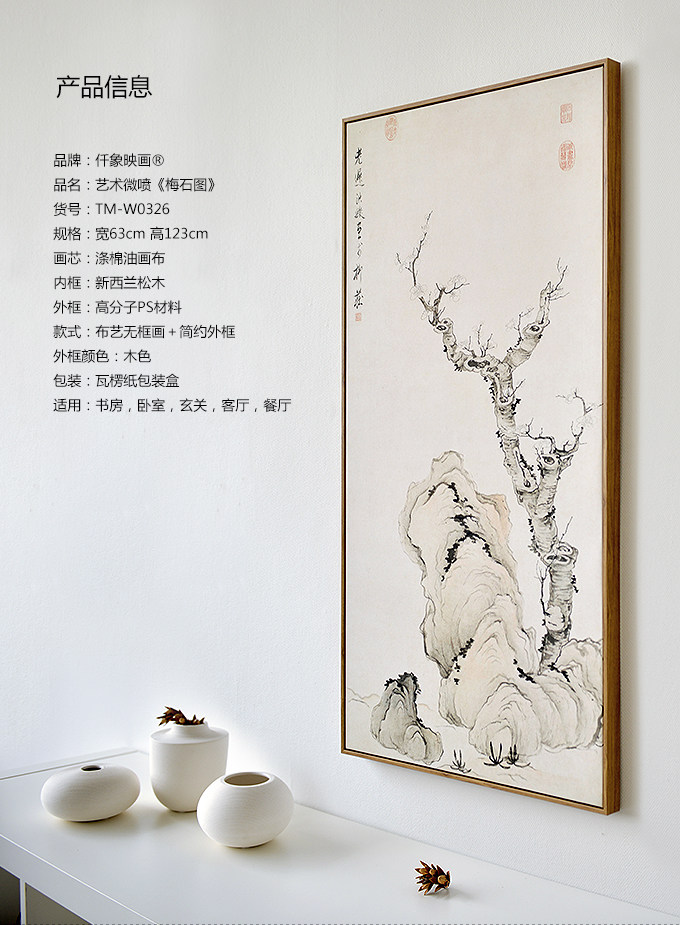 产品信息
品牌：仟象映画®
品名：艺术微喷《梅石图》
货号：TM-W0326
规格：宽63cm 高123cm
画芯：涤棉油画布
内框：新西兰松木
外框：高分子PS材料
款式：布艺无框画＋简约外框
外框颜色：木色
包装：瓦楞纸包装盒
适用：书房，卧室，玄关，客厅，餐厅